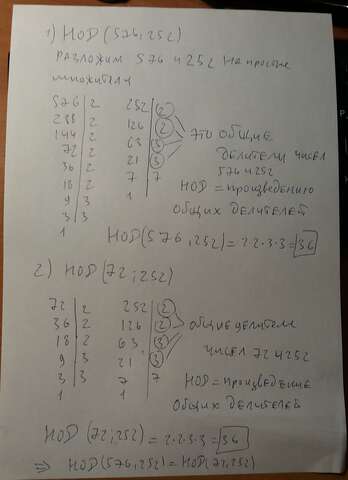 1) НОД (576; 252)
РАЗЛОЖИМ 576 и 252 НА ПРОСТЫЕ
множители
576 2 252 2
288 2 126 2
144 2 63 3
72 2 21 3
36 2 7 7
18 2 1
9 3
3 3
1
это общие
делители чисел
576 и 252
НОД = произведению
общих делителей
НОД (576, 252) = 2·2·3·3 = 36
2) НОД (72; 252)
72 2 252 2
36 2 126 2
18 2 63 3
9 3 21 3
3 3 7 7
1 1
общие делители
чисел 72 и 252
НОД = произведение
общих делителей
НОД (72; 252) = 2·2·3·3 = 36
⇒ НОД (576, 252) = НОД (72, 252)